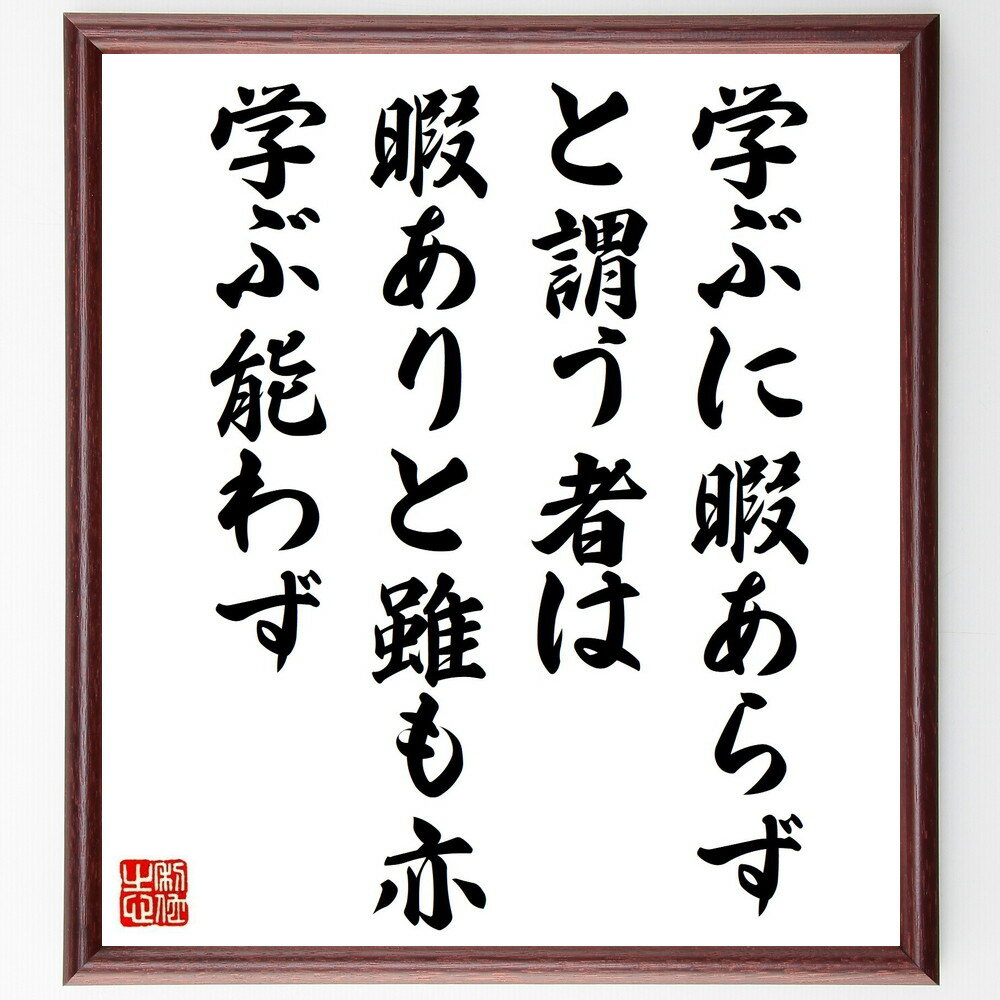 学ぶに暇あらず
と謂う者は
暇ありと雖も亦
学ぶ能わず